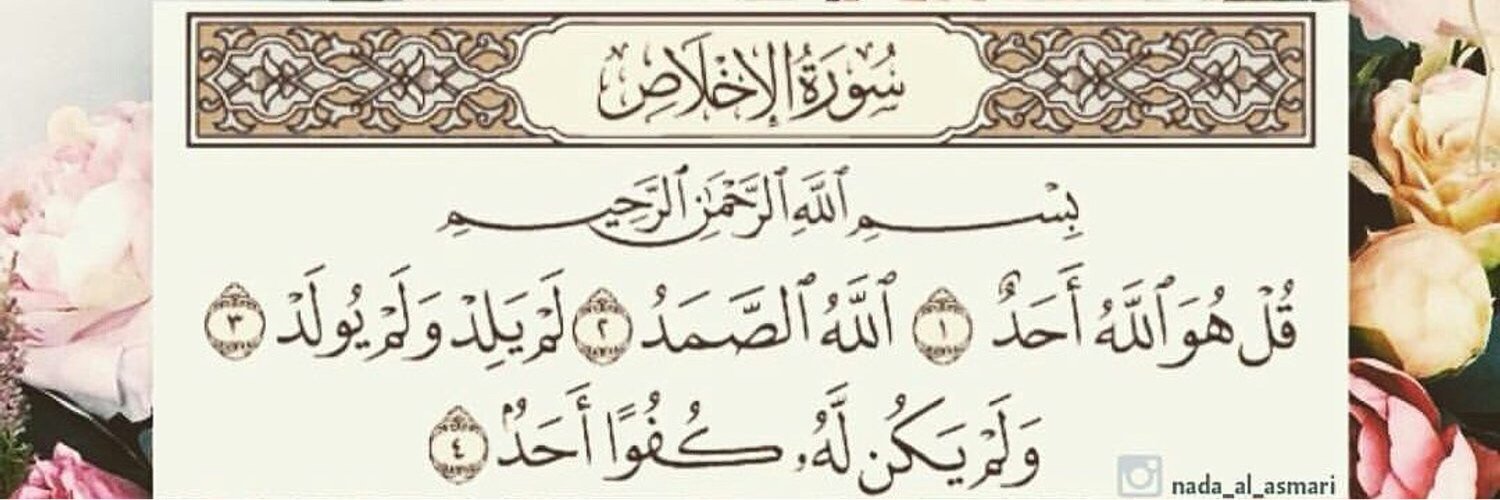 سُورَةُ الإِخْلَاصِ
بِسْمِ ٱللَّهِ ٱلرَّحْمَٰنِ ٱلرَّحِيمِ
قُلْ هُوَ ٱللَّهُ أَحَدٌ ١ ٱللَّهُ ٱلصَّمَدُ ٢ لَمْ يَلِدْ وَلَمْ يُولَدْ ٣
وَلَمْ يَكُن لَّهُۥ كُفُوًا أَحَدٌۢ ٤
nada_al_asmari